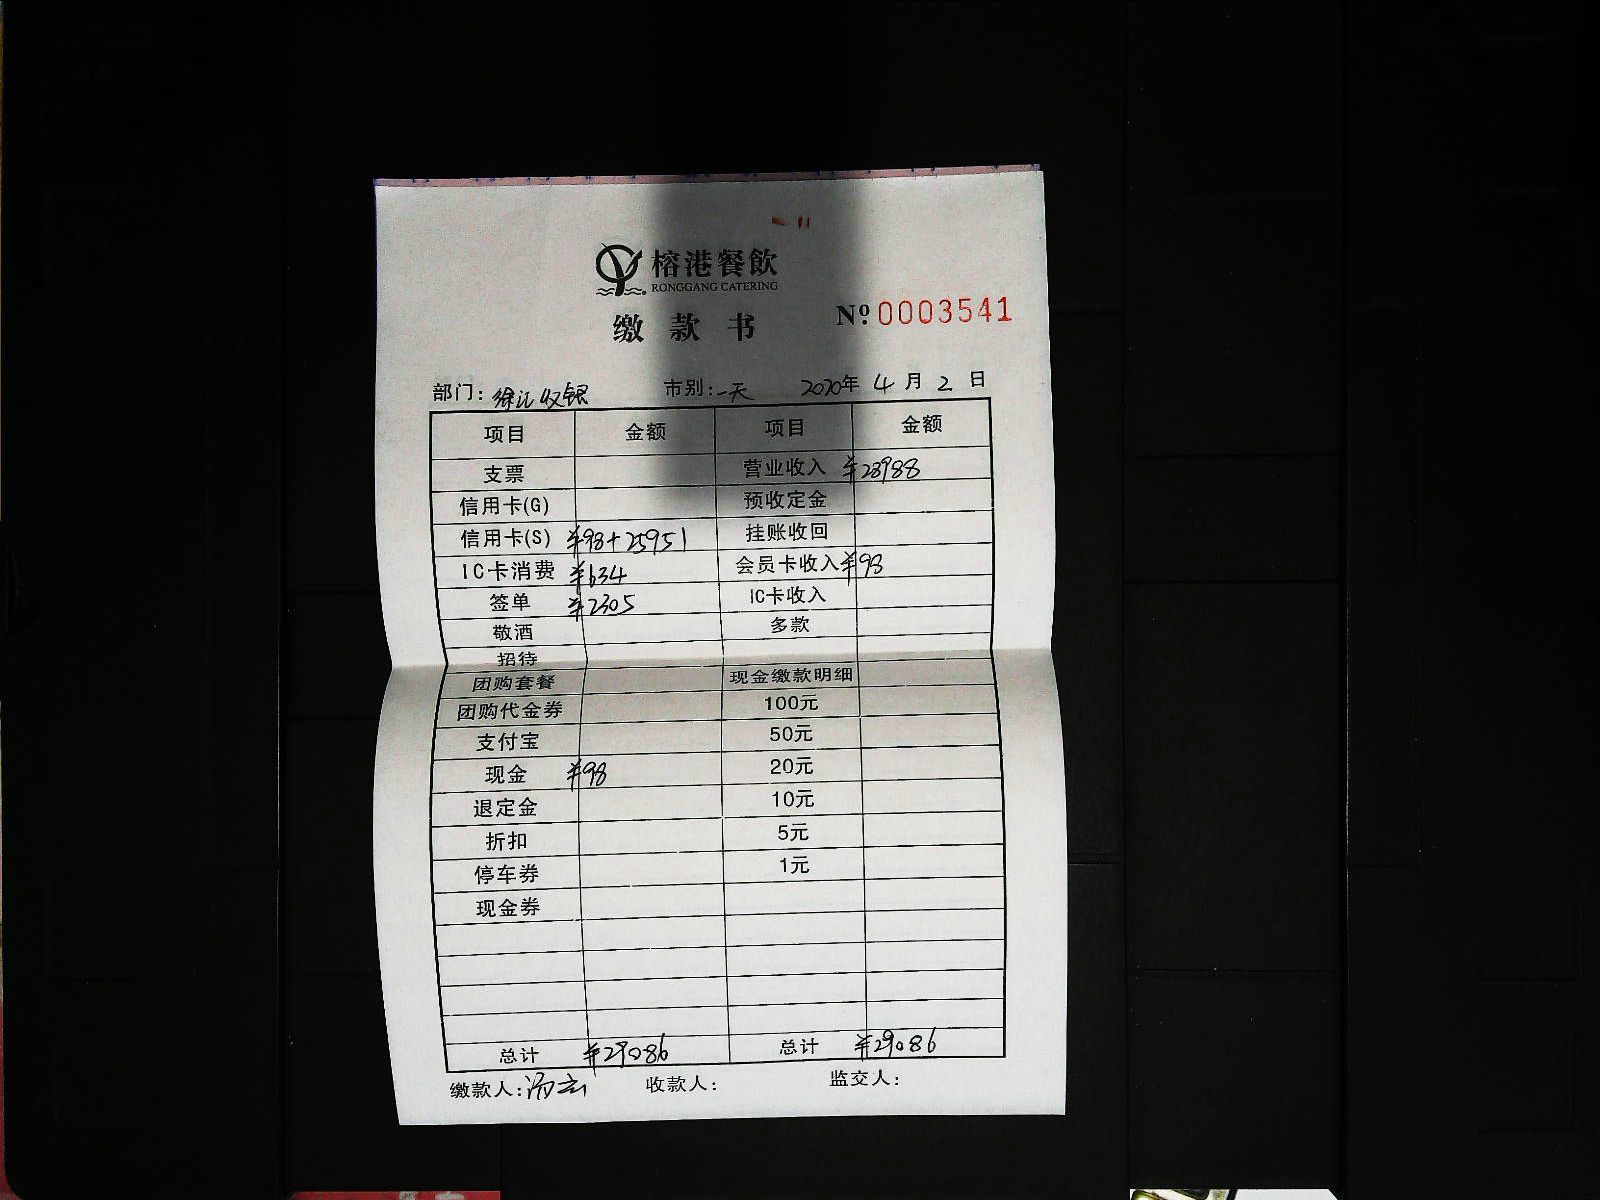 榕港餐飲
RONGGANG CATERING
缴款书 Nº 0003541
部门:徐汇收银 市别:一天 2020年4月2日
项目 金额 项目 金额
支票 营业收入 ¥28988
信用卡(G) 预收定金
信用卡(S) ¥98+25951 挂账收回
IC卡消费 ¥634 会员卡收入 ¥98
签单 ¥2305 IC卡收入
敬酒 多款
招待
团购套餐 现金缴款明细
团购代金券 100元
支付宝 50元
现金 ¥98 20元
退定金 10元
折扣 5元
停车券 1元
现金券
总计 ¥29086 总计 ¥29086
缴款人: 收款人: 监交人: